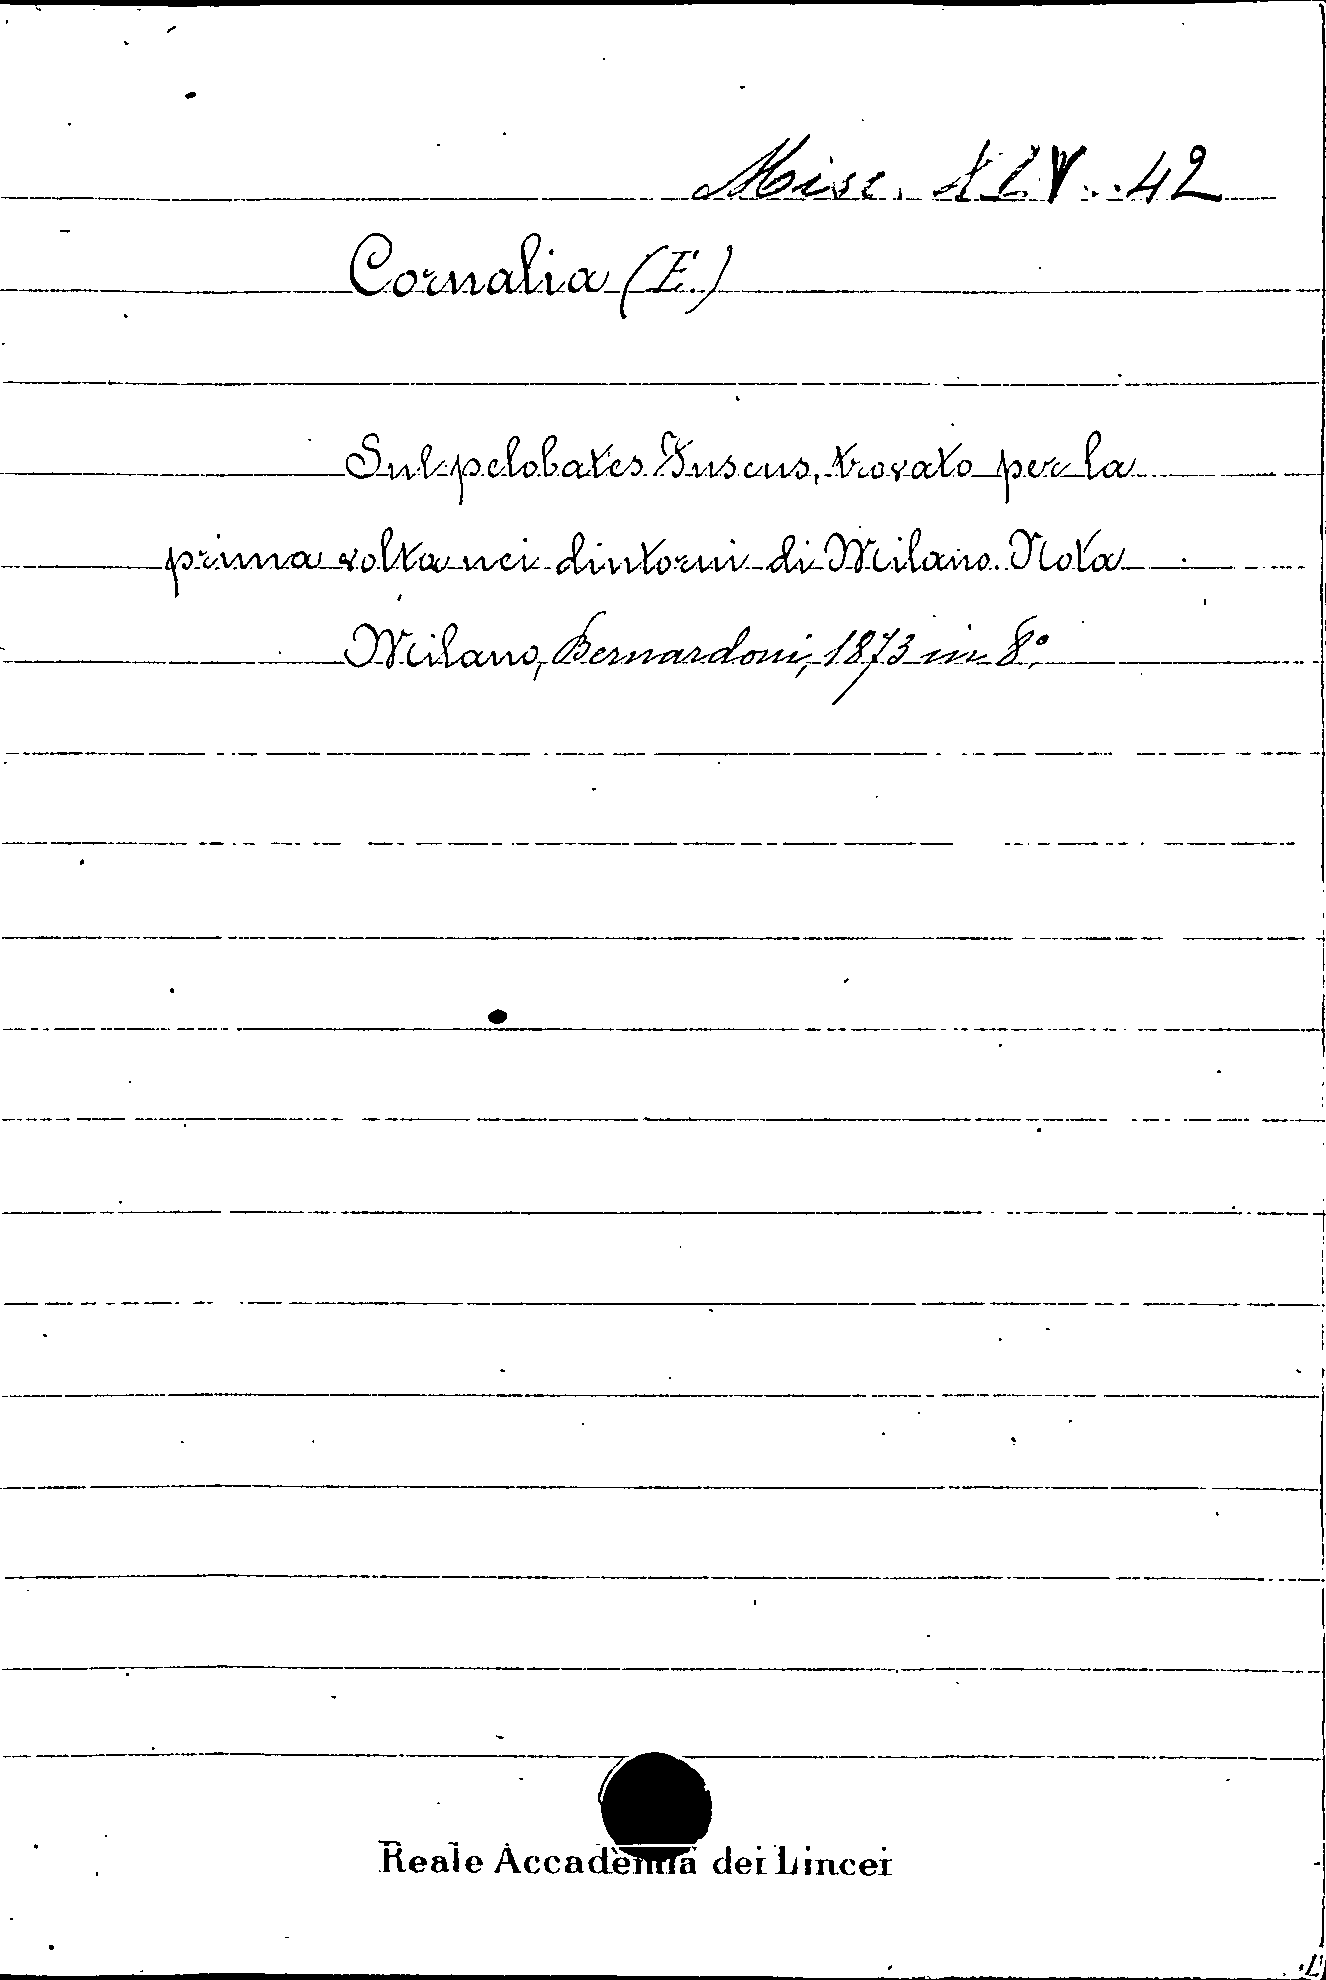 Misc. XLV. 42
Cornalia (E.)
Sul pelobates Fuscus, trovato per la
prima volta nei dintorni di Milano. Nota
Milano, Bernardoni, 1873 in 8.°
Reale Accademia dei Lincei